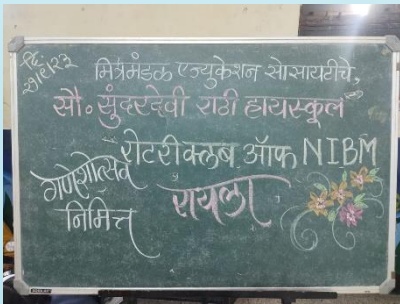 दि
२१/९/२३
मित्रमंडळ एज्युकेशन सोसायटीचे,
सौ. सुंदरदेवी राठी हायस्कूल
रोटरी क्लब ऑफ NIBM
गणेशोत्सव
निमित्त
रायला